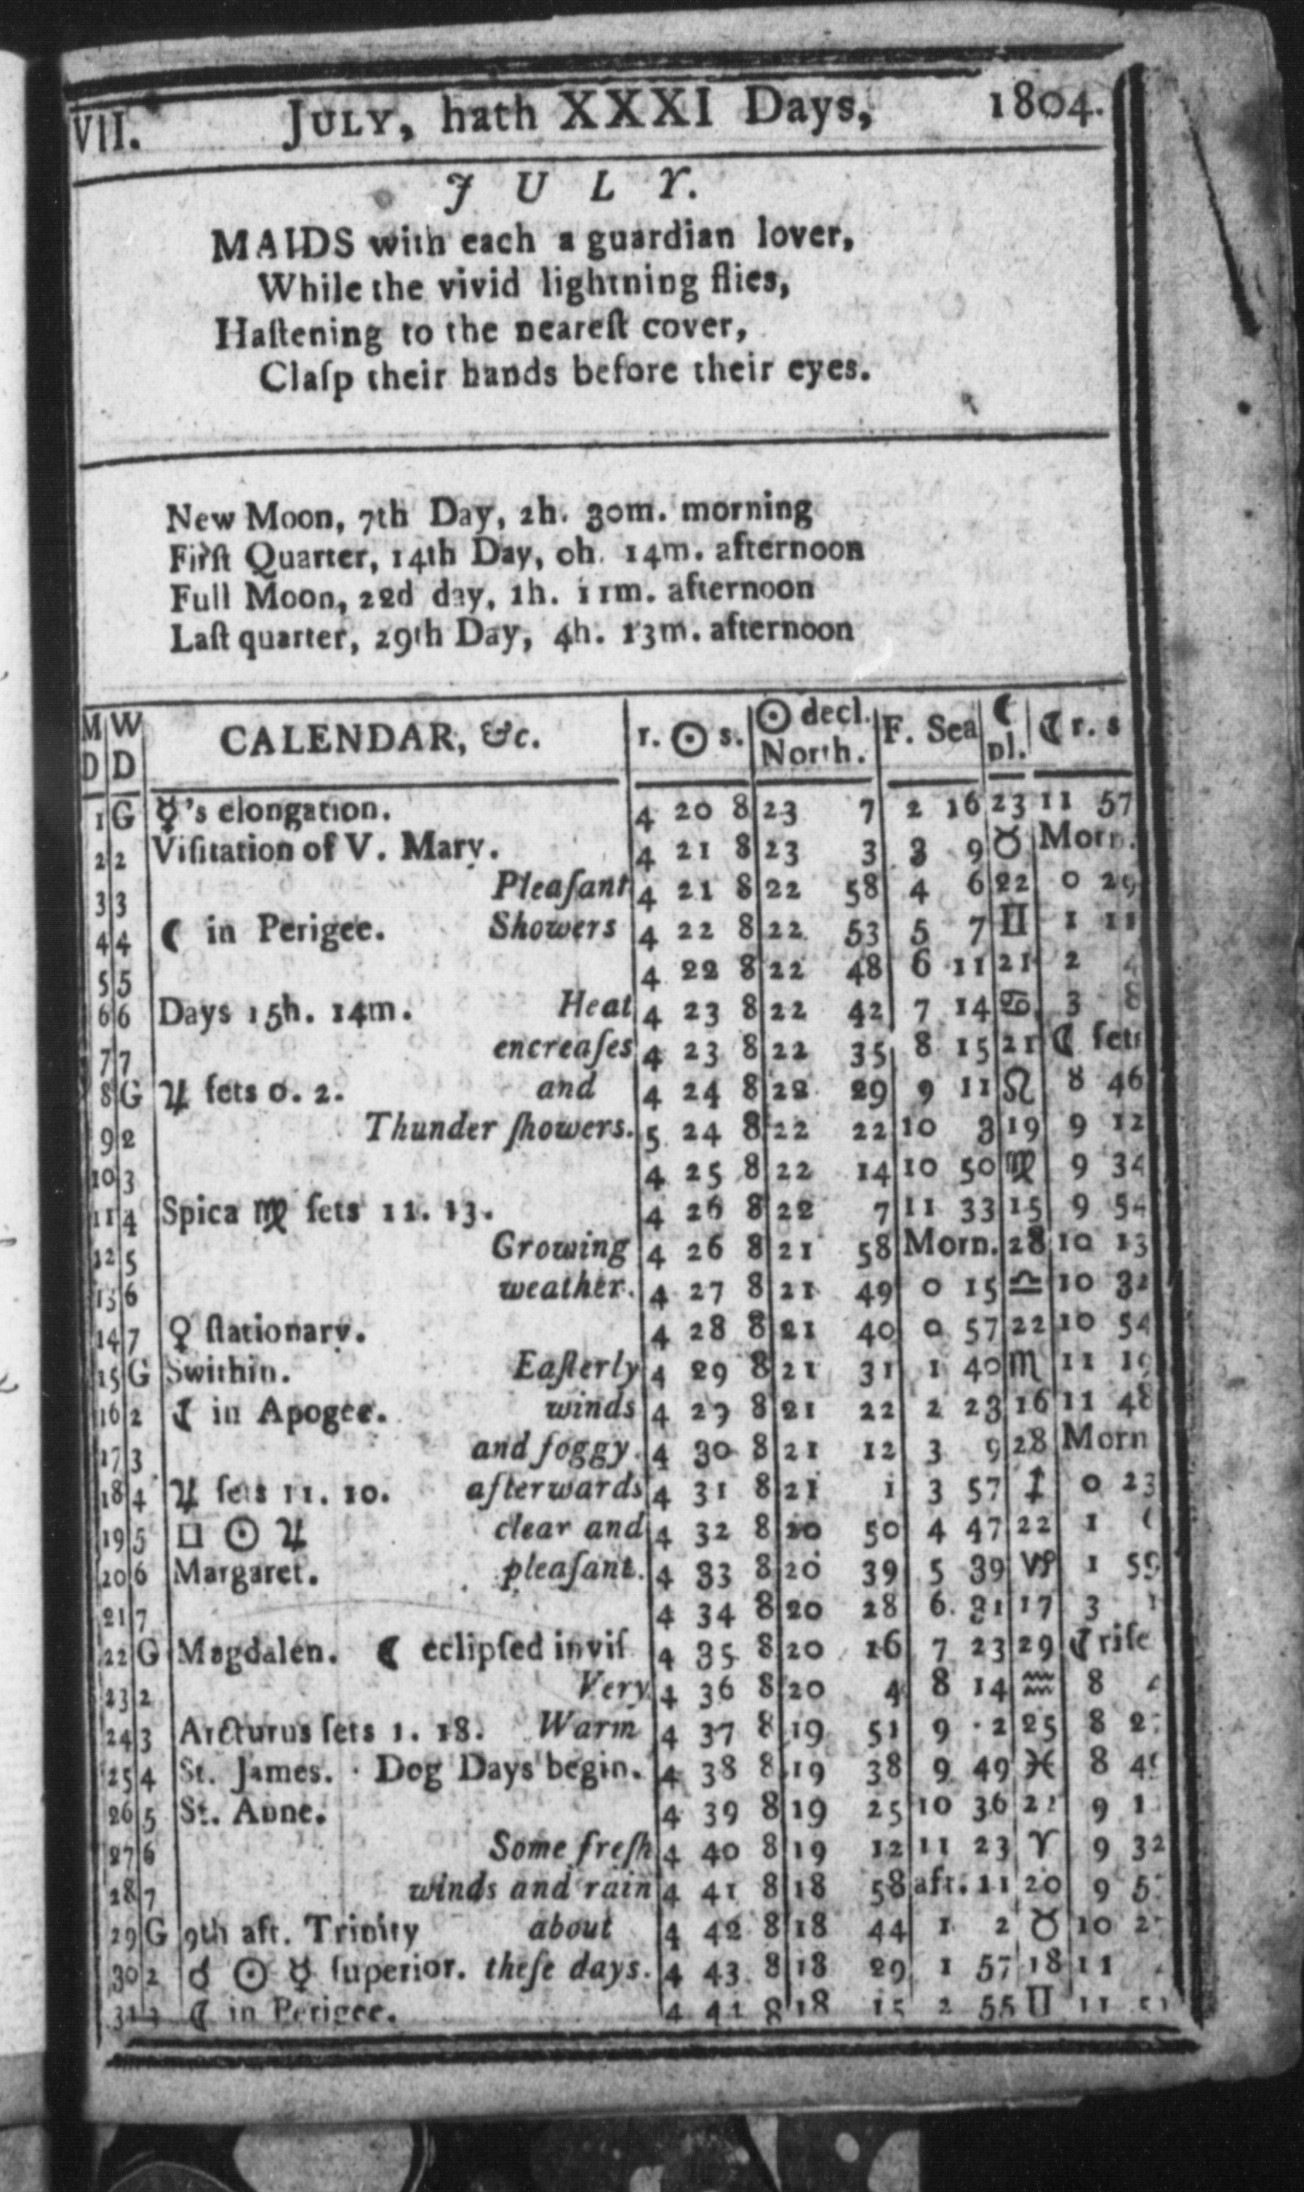 VII. JULY, hath XXXI Days, 1804.
JULY.
MAIDS with each a guardian lover,
While the vivid lightning flies,
Haſtening to the neareſt cover,
Claſp their hands before their eyes.
New Moon, 7th Day, 2h. 30m. morning
Firſt Quarter, 14th Day, 0h. 14m. afternoon
Full Moon, 22d day, 1h. 11m. afternoon
Laſt quarter, 29th Day, 4h. 13m. afternoon
M D W D CALENDAR, &c. r. ☉ s. ☉ decl. North. F. Sea ☾ pl. ☾ r. s
1 G ☿'s elongation. 4 20 8 23 7 2 16 23 11 57
2 2 Viſitation of V. Mary. 4 21 8 23 3 3 9 ♉ Morn.
3 3 Pleaſant 4 21 8 22 58 4 6 22 0 29
4 4 ☾ in Perigee. Showers 4 22 8 22 53 5 7 ♊ 1 11
5 5 4 22 8 22 48 6 11 21 2 4
6 6 Days 15h. 14m. Heat 4 23 8 22 42 7 14 ♋ 3 8
7 7 encreaſes 4 23 8 22 35 8 15 21 ☾ ſets
8 G ♃ ſets 0. 2. and 4 24 8 22 29 9 11 ♌ 8 46
9 2 Thunder ſhowers. 5 24 8 22 22 10 3 19 9 12
10 3 4 25 8 22 14 10 50 ♍ 9 34
11 4 Spica ♍ ſets 11. 13. 4 26 8 22 7 11 33 15 9 54
12 5 Growing 4 26 8 21 58 Morn. 28 10 13
13 6 weather. 4 27 8 21 49 0 15 ♎ 10 32
14 7 ♀ ſtationary. 4 28 8 21 40 0 57 22 10 54
15 G Swithin. Eaſterly 4 29 8 21 31 1 40 ♏ 11 19
16 2 ☾ in Apogee. winds 4 29 8 21 22 2 23 16 11 48
17 3 and foggy. 4 30 8 21 12 3 9 28 Morn
18 4 ♃ ſets 11. 10. afterwards 4 31 8 21 1 3 57 ♐ 0 23
19 5 □ ☉ ♃ clear and 4 32 8 20 50 4 47 22 1
20 6 Margaret. pleaſant. 4 33 8 20 39 5 39 ♑ 1 59
21 7 4 34 8 20 28 6 31 17 3
22 G Magdalen. ☾ eclipſed inviſ 4 35 8 20 16 7 23 29 ☾ riſe
23 2 Very 4 36 8 20 4 8 14 ♒ 8
24 3 Arcturus ſets 1. 18. Warm 4 37 8 19 51 9 2 25 8
25 4 St. James. Dog Days begin. 4 38 8 19 38 9 49 ♓ 8
26 5 St. Anne. 4 39 8 19 25 10 36 21 9
27 6 Some freſh 4 40 8 19 12 11 23 ♈ 9 32
28 7 winds and rain 4 41 8 18 58 aft. 11 20 9
29 G 9th aft. Trinity about 4 42 8 18 44 1 2 ♉ 10
30 2 ☌ ☉ ☿ ſuperior. theſe days. 4 43 8 18 29 1 57 18 11
31 3 ☾ in Perigee. 4 44 8 18 15 2 55 ♊ 11